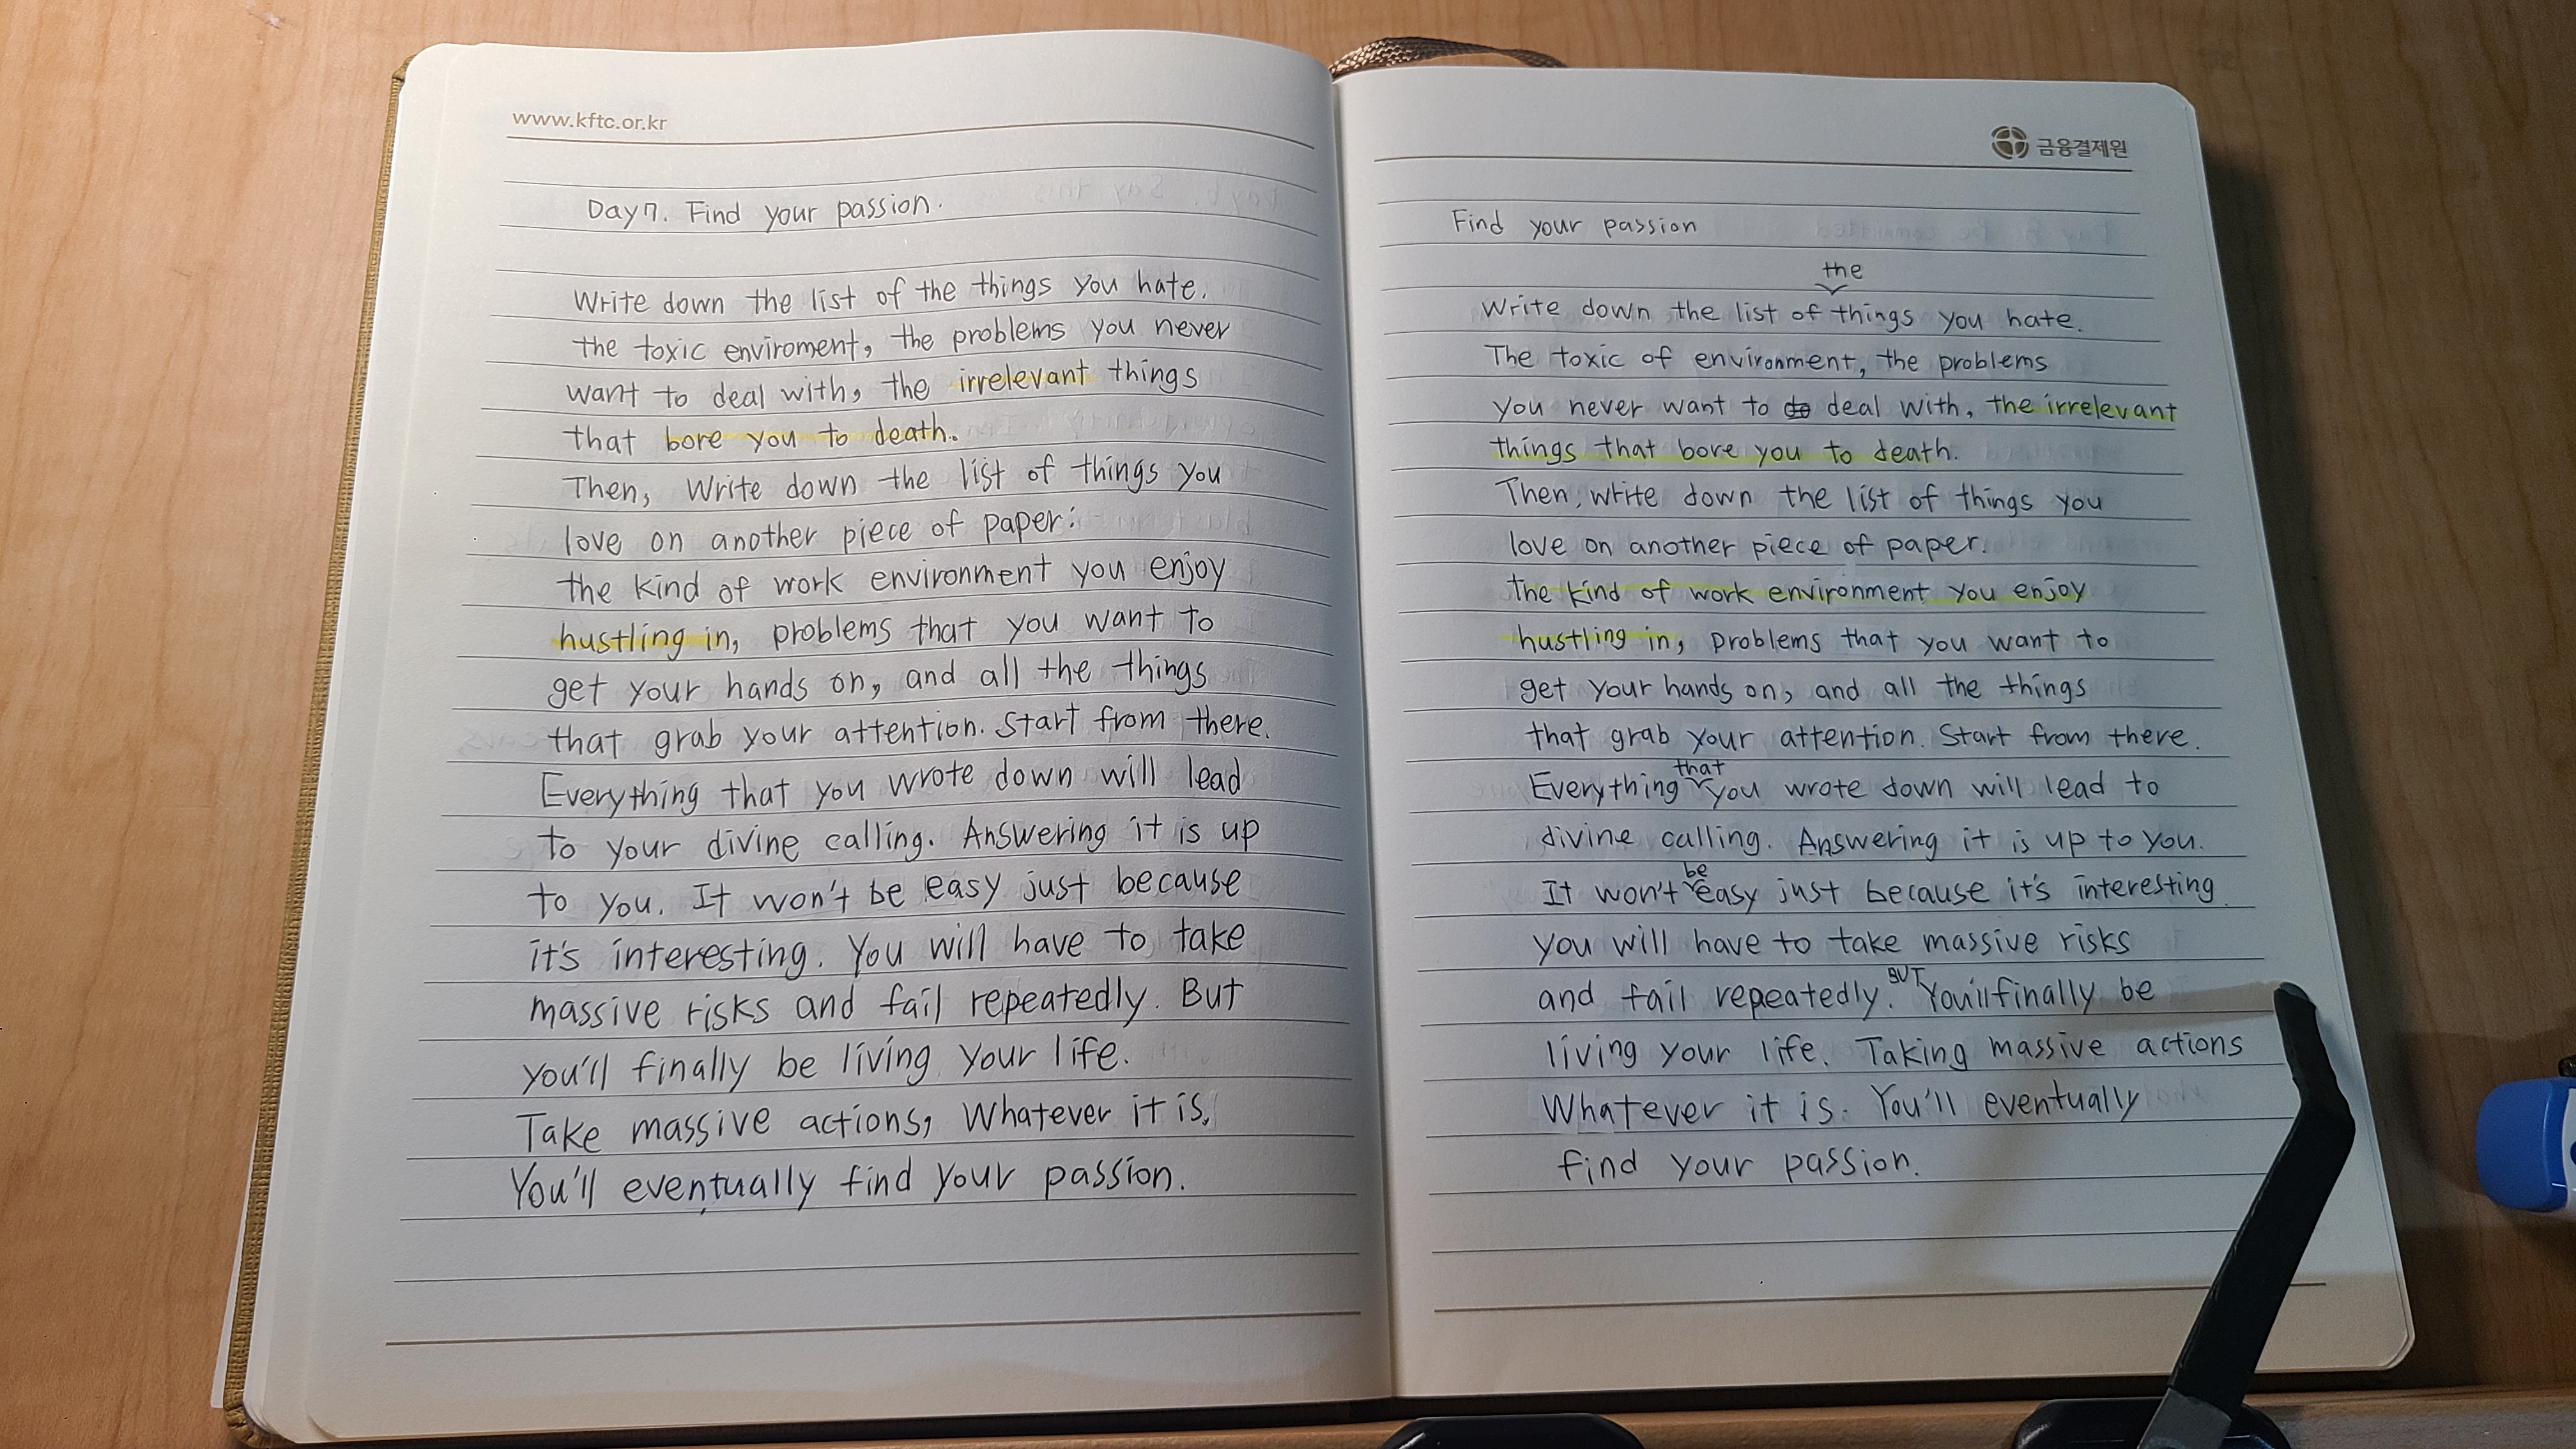 www.kftc.or.kr
Day 7. Find your passion.
Write down the list of the things you hate.
the toxic enviroment, the problems you never
want to deal with, the irrelevant things
that bore you to death.
Then, Write down the list of things you
love on another piece of paper:
the kind of work environment you enjoy
hustling in, problems that you want to
get your hands on, and all the things
that grab your attention. Start from there.
Everything that you wrote down will lead
to your divine calling. Answering it is up
to you. It won't be easy just because
it's interesting. You will have to take
massive risks and fail repeatedly. But
you'll finally be living your life.
Take massive actions, Whatever it is.
You'll eventually find your passion.
금융결제원
Find your passion
the
Write down the list of things you hate.
The toxic of environment, the problems
you never want to do deal with, the irrelevant
things that bore you to death.
Then, write down the list of things you
love on another piece of paper.
the kind of work environment you enjoy
hustling in, problems that you want to
get your hands on, and all the things
that grab your attention. Start from there.
that
Everything you wrote down will lead to
divine calling. Answering it is up to you.
be
It won't easy just because it's interesting.
you will have to take massive risks
BUT
and fail repeatedly. You'll finally be
living your life. Taking massive actions
Whatever it is. You'll eventually
find your passion.